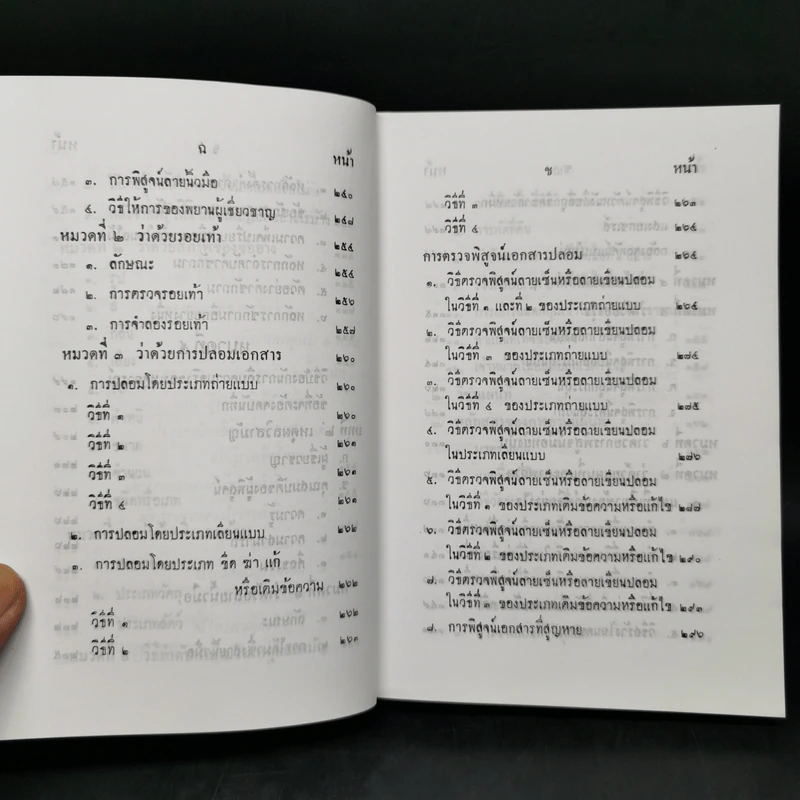 ฉ
หน้า
๓. การพิสูจน์ลายนิ้วมือ ๒๔๐
๔. วิธีให้การของพยานผู้เชี่ยวชาญ ๒๔๘
หมวดที่ ๒ ว่าด้วยรอยเท้า ๒๕๔
๑. ลักษณะ ๒๕๔
๒. การตรวจรอยเท้า ๒๕๖
๓. การจำลองรอยเท้า ๒๕๗
หมวดที่ ๓ ว่าด้วยการปลอมเอกสาร ๒๖๐
๑. การปลอมโดยประเภทถ่ายแบบ ๒๖๐
วิธีที่ ๑ ๒๖๐
วิธีที่ ๒ ๒๖๑
วิธีที่ ๓ ๒๖๑
วิธีที่ ๔ ๒๖๑
๒. การปลอมโดยประเภทเลียนแบบ ๒๖๒
๓. การปลอมโดยประเภท ขีด ฆ่า แก้
หรือเติมข้อความ ๒๖๒
วิธีที่ ๑ ๒๖๒
วิธีที่ ๒ ๒๖๓
ช
หน้า
วิธีที่ ๓ ๒๖๓
วิธีที่ ๔ ๒๖๔
การตรวจพิสูจน์เอกสารปลอม ๒๖๔
๑. วิธีตรวจพิสูจน์ลายเซ็นหรือลายเขียนปลอม
ในวิธีที่ ๑ และที่ ๒ ของประเภทถ่ายแบบ ๒๖๔
๒. วิธีตรวจพิสูจน์ลายเซ็นหรือลายเขียนปลอม
ในวิธีที่ ๓ ของประเภทถ่ายแบบ ๒๗๔
๓. วิธีตรวจพิสูจน์ลายเซ็นหรือลายเขียนปลอม
ในวิธีที่ ๔ ของประเภทถ่ายแบบ ๒๗๕
๔. วิธีตรวจพิสูจน์ลายเซ็นหรือลายเขียนปลอม
ในประเภทเลียนแบบ ๒๗๖
๕. วิธีตรวจพิสูจน์ลายเซ็นหรือลายเขียนปลอม
ในวิธีที่ ๑ ของประเภทเติมข้อความหรือแก้ไข ๒๘๗
๖. วิธีตรวจพิสูจน์ลายเซ็นหรือลายเขียนปลอม
ในวิธีที่ ๒ ของประเภทเติมข้อความหรือแก้ไข ๒๙๐
๗. วิธีตรวจพิสูจน์ลายเซ็นหรือลายเขียนปลอม
ในวิธีที่ ๓ ของประเภทเติมข้อความหรือแก้ไข ๒๙๓
๘. การพิสูจน์เอกสารที่สูญหาย ๒๙๖